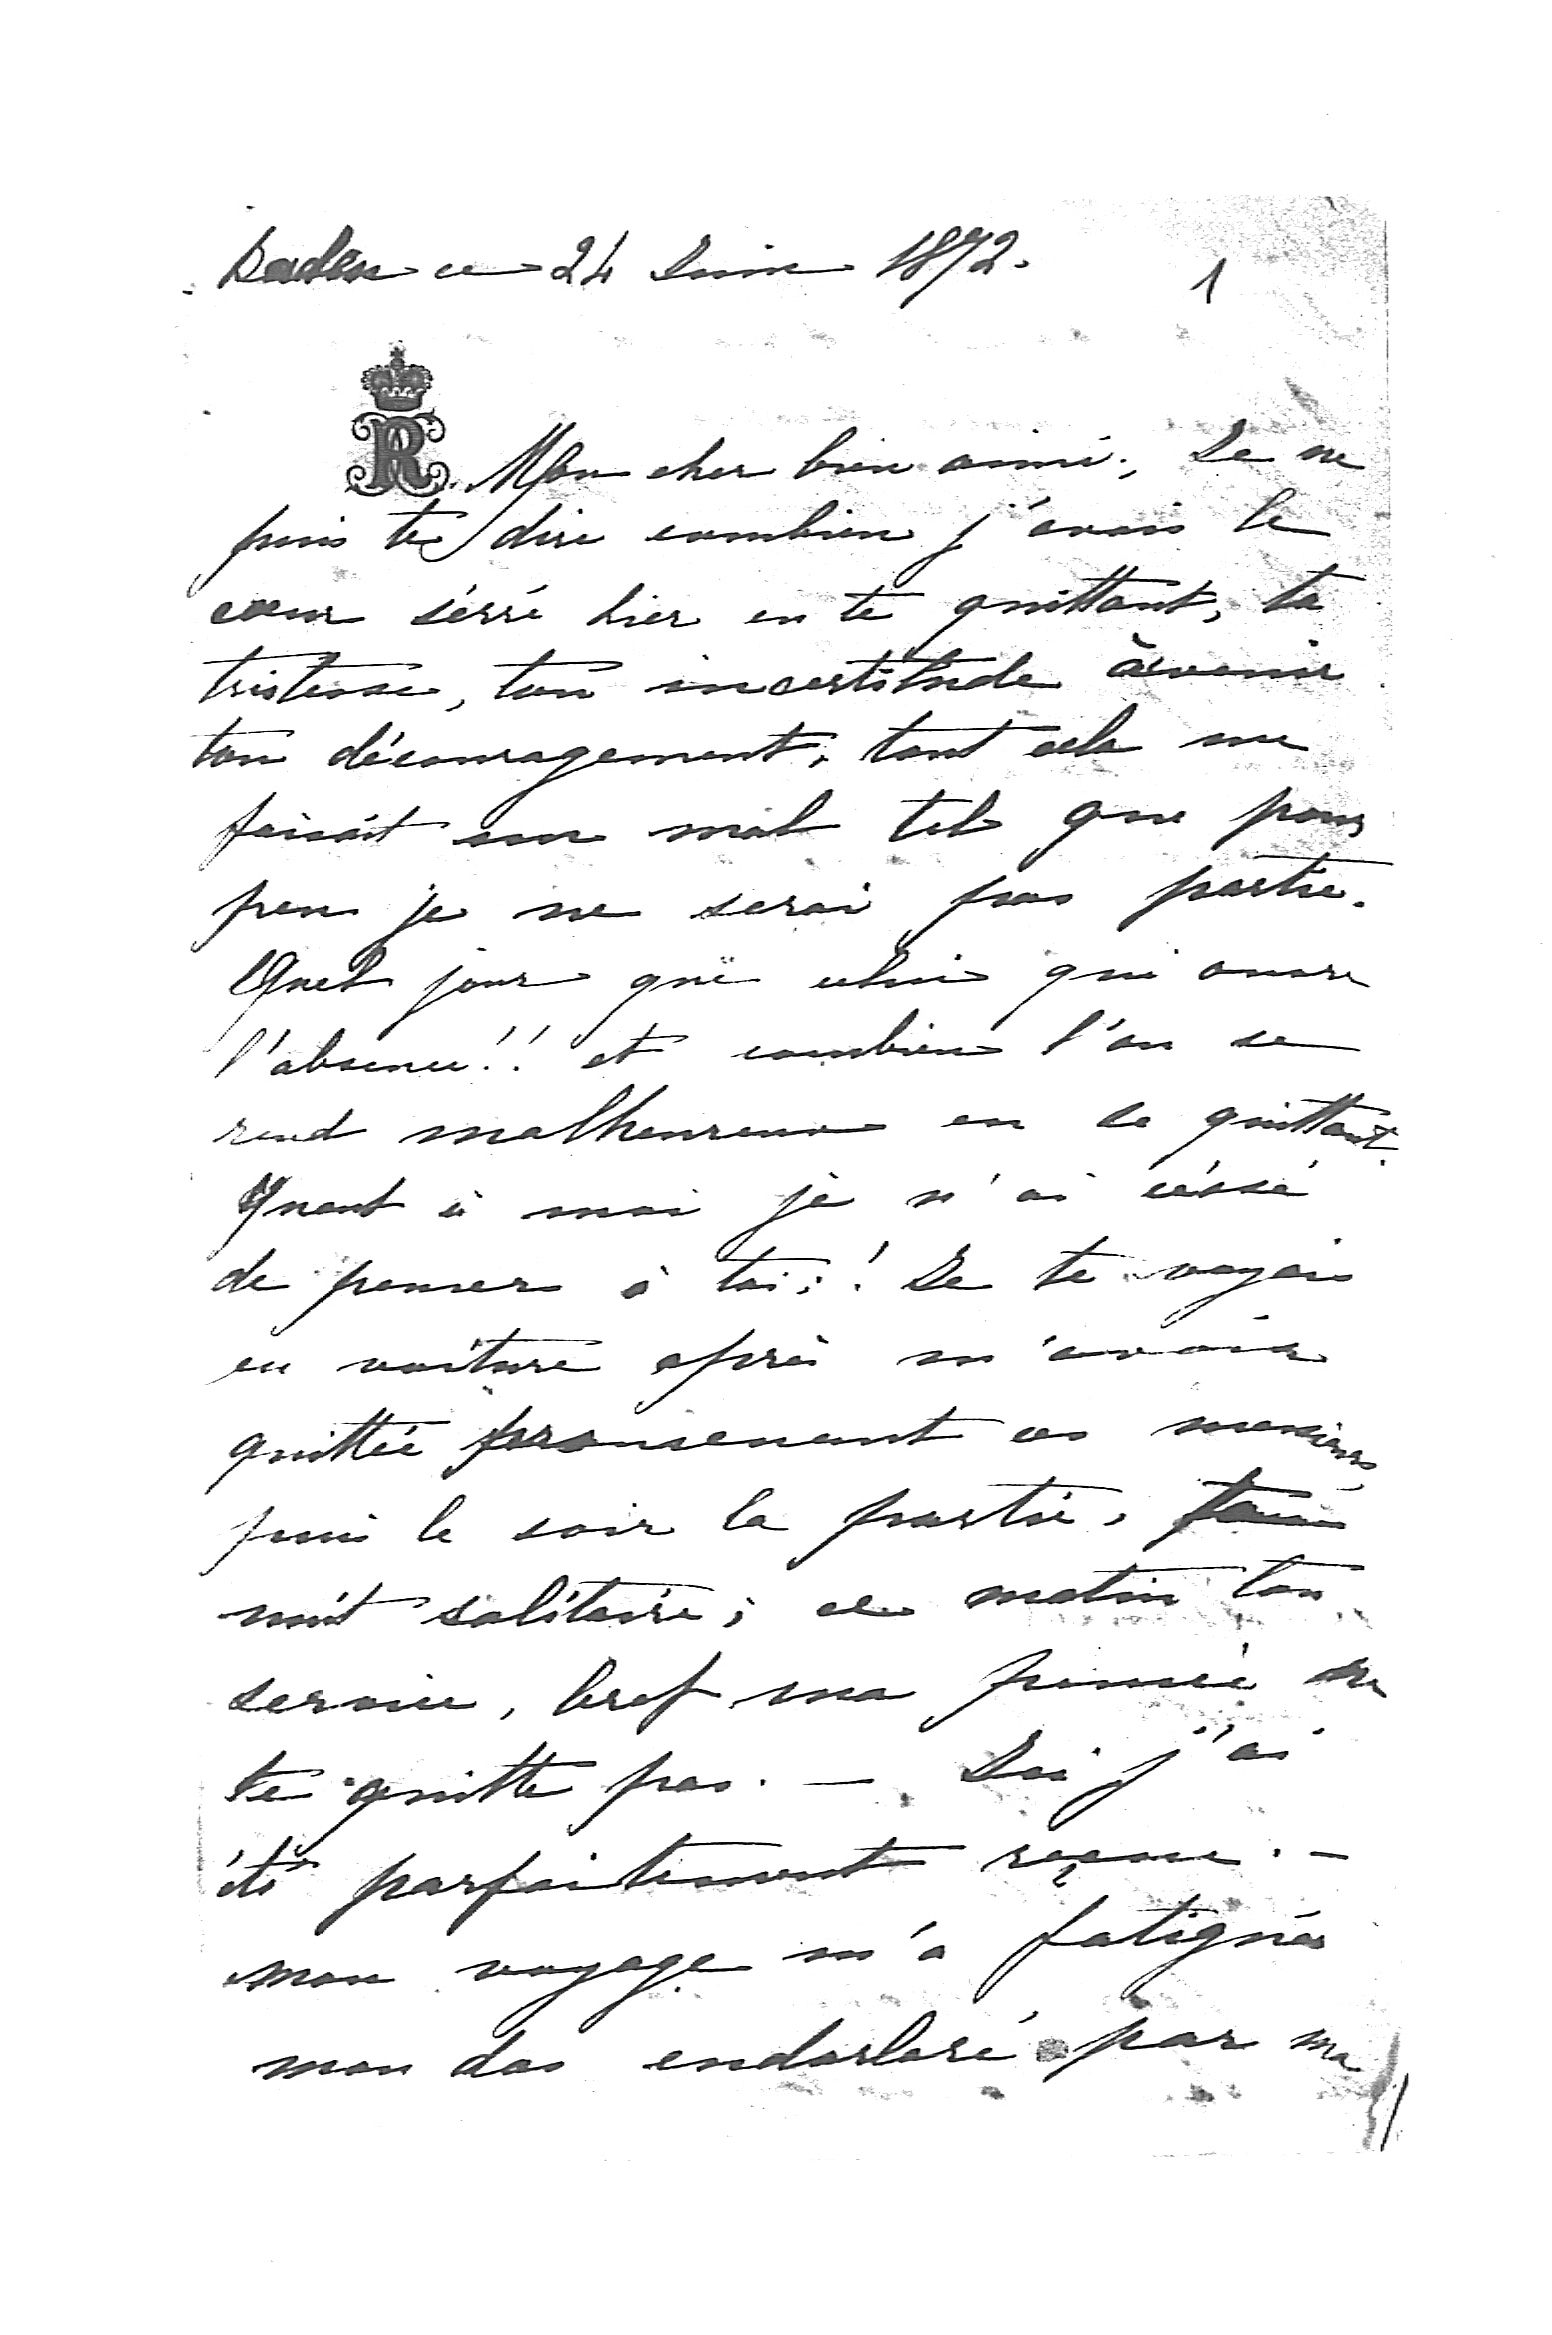 Baden ce 24 Juin 1872.
1
R
Mon cher bien aimé, Je ne
puis te dire combien j'avais le
cœur sérré hier en te quittant, ta
tristesse, ton incertitude àvenir
ton découragement, tout cela me
faisait un mal tel que pour
peu je ne serai pas partie.
Quel jour que celui qui ouvre
l'absence!! et combien l'on se
rend malheureux en se quittant.
Quant à moi je n'ai céssé
de penser à toi! Je te voyais
en voiture après m'avoir
quittée promenant ces messieurs,
puis le soir la partie,
nuit solitaire; ce matin ton
service, bref ma pensée ne
te quitte pas. — Ici j'ai
été parfaitement reçue. —
mon voyage m'a fatiguée
mon dos endorloré par ma